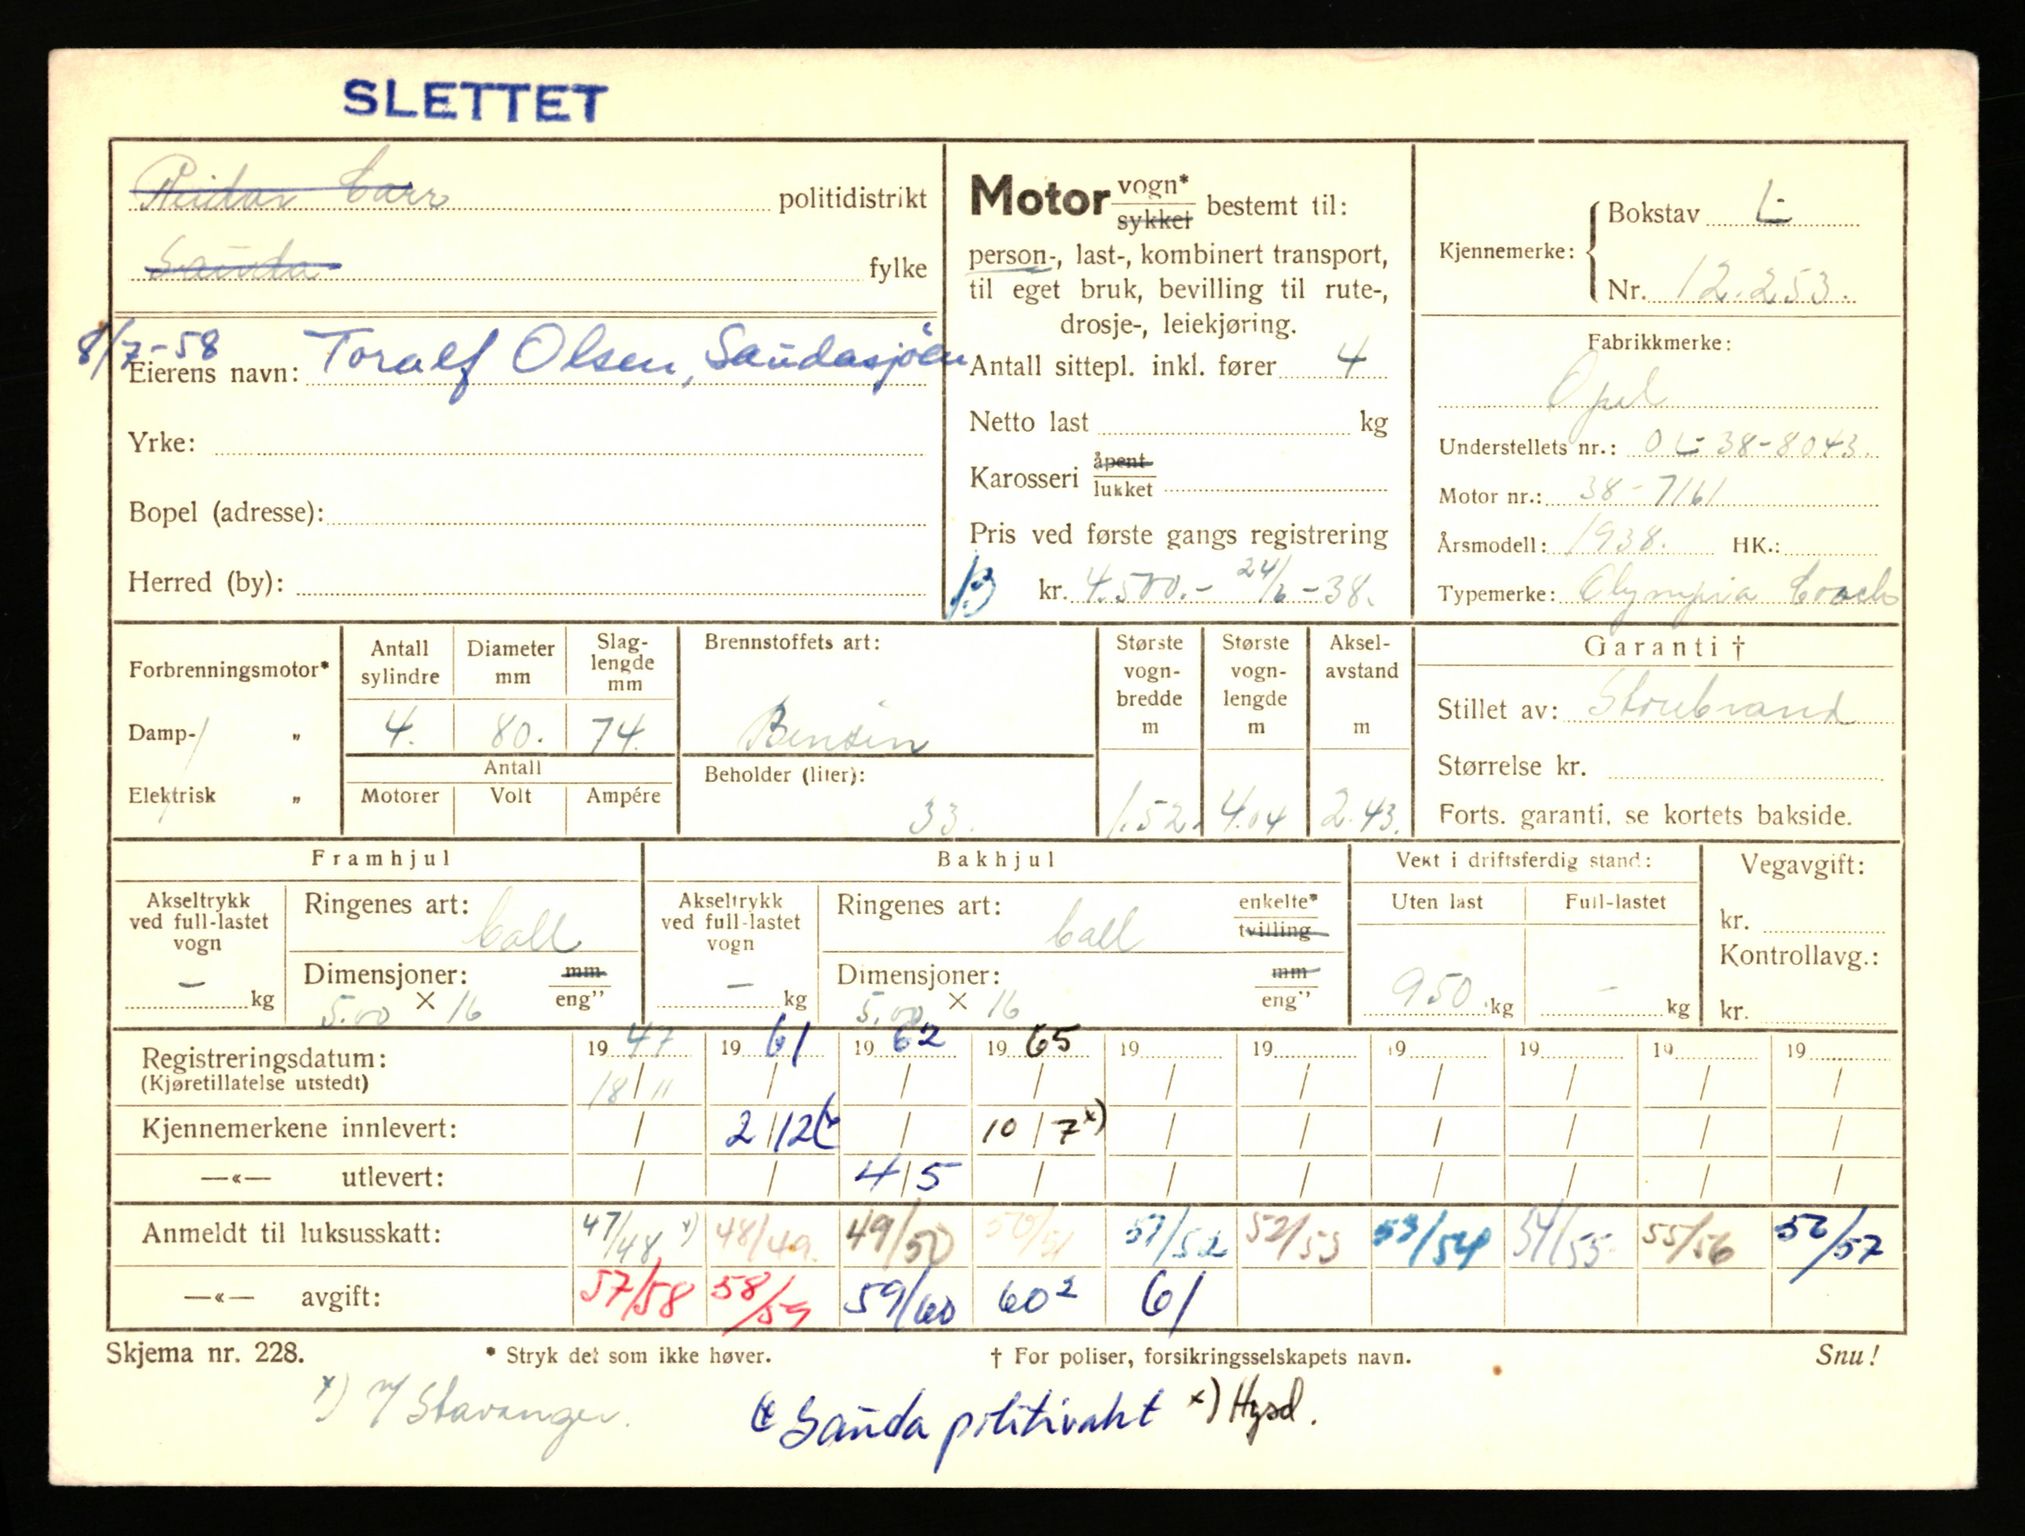 SLETTET
Reidar Carr politidistrikt
Sauda fylke
8/7-58
Eierens navn: Toralf Olsen, Saudasjøen
Yrke:
Bopel (adresse):
Herred (by):
Motor vogn* sykkel bestemt til:
person-, last-, kombinert transport,
til eget bruk, bevilling til rute-,
drosje-, leiekjøring.
Antall sittepl. inkl. fører 4
Netto last kg
Karosseri åpent lukket
Pris ved første gangs registrering
kr. 4.500.- 24/6-38.
Kjennemerke: Bokstav L-
Nr. 12.253.
Fabrikkmerke:
Opel
Understellets nr.: OL-38-8043.
Motor nr.: 38-7161
Årsmodell: 1938. HK.:
Typemerke: Olympia Coach
Forbrenningsmotor*
Damp- „
Elektrisk „
Antall sylindre 4.
Diameter mm 80.
Slag-lengde mm 74.
Antall
Motorer Volt Ampére
Brennstoffets art:
Bensin
Beholder (liter):
33.
Største vogn-bredde m 1.52.
Største vogn-lengde m 4.04
Aksel-avstand m 2.43.
Garanti †
Stillet av: Storebrand
Størrelse kr.
Forts. garanti, se kortets bakside.
Framhjul
Akseltrykk ved full-lastet vogn
— kg
Ringenes art: Coll
Dimensjoner: mm eng"
5.00 × 16
Bakhjul
Akseltrykk ved full-lastet vogn
— kg
Ringenes art: Coll enkelte* tvilling
Dimensjoner: mm eng"
5.00 × 16
Vekt i driftsferdig stand:
Uten last Full-lastet
950 kg — kg
Vegavgift:
kr.
Kontrollavg.:
kr.
Registreringsdatum: 19 47 19 61 19 62 19 65 19 19 19 19 19 19
(Kjøretillatelse utstedt) 18/11 / / / / / / / / /
Kjennemerkene innlevert: / 2/12 / 10/7 x) / / / / / /
—«— utlevert: / / 4/5 / / / / / / /
Anmeldt til luksusskatt: 47/48 x) 48/49. 49/50 50/51 51/52 52/53 53/54 54/55 55/56 56/57
—«— avgift: 57/58 58/59 59/60 60² 61
Skjema nr. 228. * Stryk det som ikke høver. † For poliser, forsikringsselskapets navn. Snu!
x) Stavanger.
Sauda politivakt x) Hgsd.